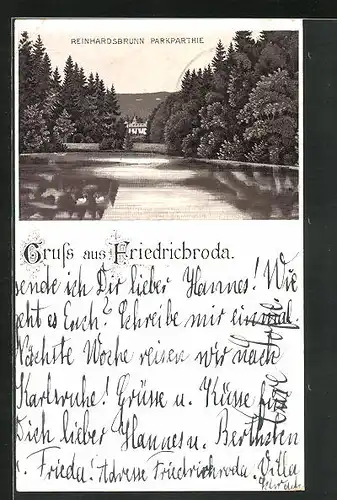 REINHARDSBRUNN PARKPARTHIE
Gruss aus Friedrichroda.
sende ich Dir lieber Hannes! Wie
geht es Euch? Schreibe mir einmal.
Nächste Woche reisen wir nach
Karlsruhe! Grüsse u. Küsse für
Dich lieber Hannes u. Berthchen
u. Frieda! Adresse Friedrichroda. Villa